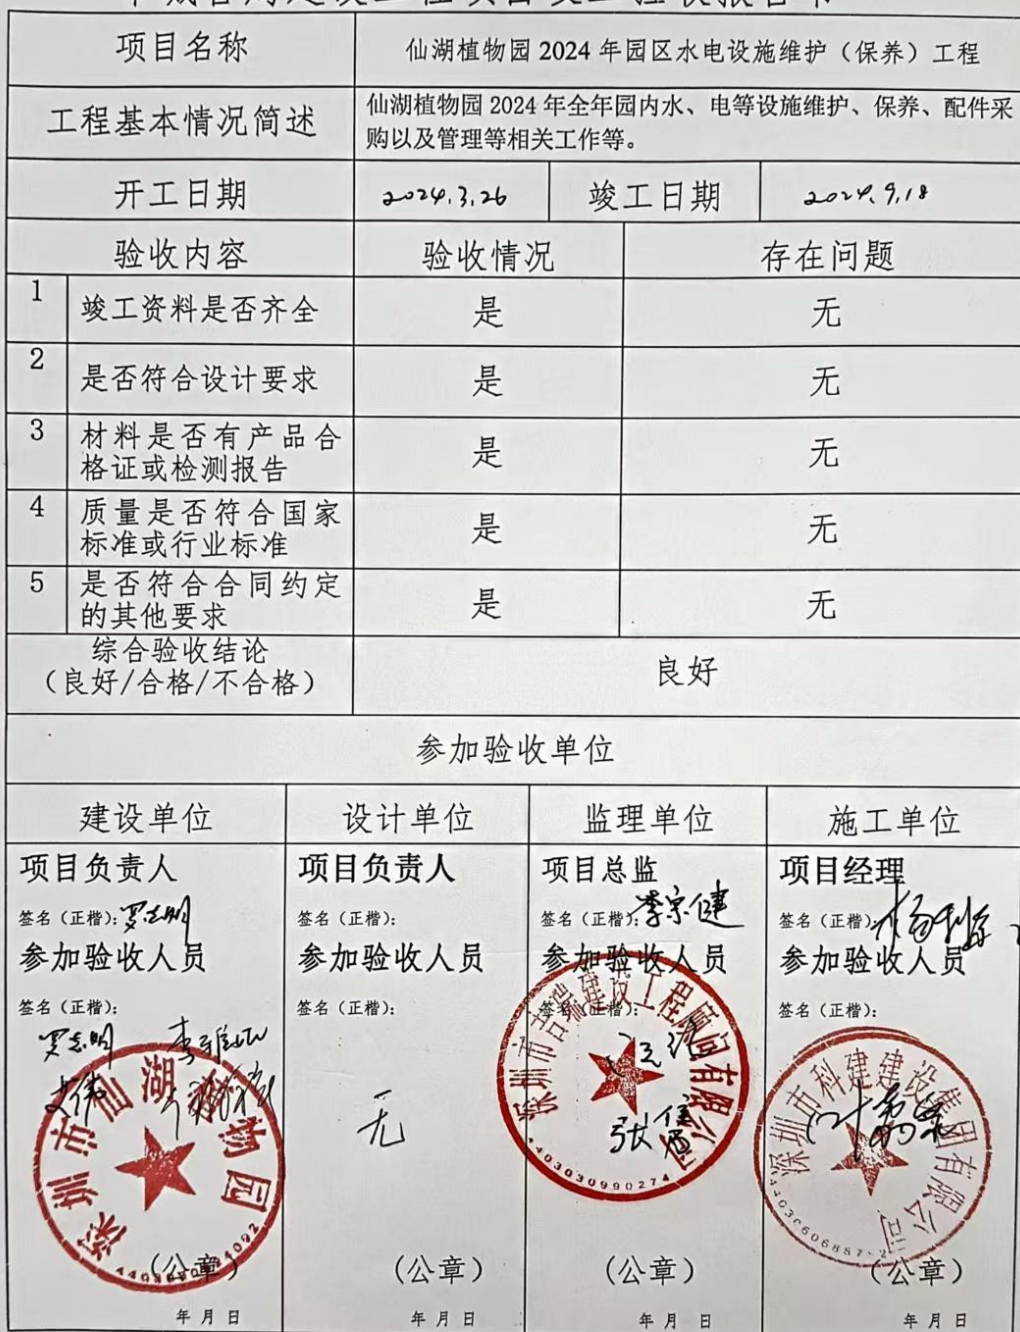 项目名称
仙湖植物园 2024 年园区水电设施维护（保养）工程
工程基本情况简述
仙湖植物园 2024 年全年园内水、电等设施维护、保养、配件采
购以及管理等相关工作等。
开工日期
2024.3.26
竣工日期
2024.9.18
验收内容
验收情况
存在问题
1
竣工资料是否齐全
是
无
2
是否符合设计要求
是
无
3
材料是否有产品合
格证或检测报告
是
无
4
质量是否符合国家
标准或行业标准
是
无
5
是否符合合同约定
的其他要求
是
无
综合验收结论
（良好/合格/不合格）
良好
参加验收单位
建设单位
设计单位
监理单位
施工单位
项目负责人
签名（正楷）：罗志明
参加验收人员
签名（正楷）：
罗志明
艾伟
深圳市仙湖植物园
（公章）
年 月 日
项目负责人
签名（正楷）：
参加验收人员
签名（正楷）：
无
（公章）
年 月 日
项目总监
签名（正楷）：李宗健
参加验收人员
签名（正楷）：
深圳市吉瑞建设工程顾问有限公司
4403030990274
（公章）
年 月 日
项目经理
签名（正楷）：
参加验收人员
签名（正楷）：
深圳市科建建设集团有限公司
（公章）
年 月 日